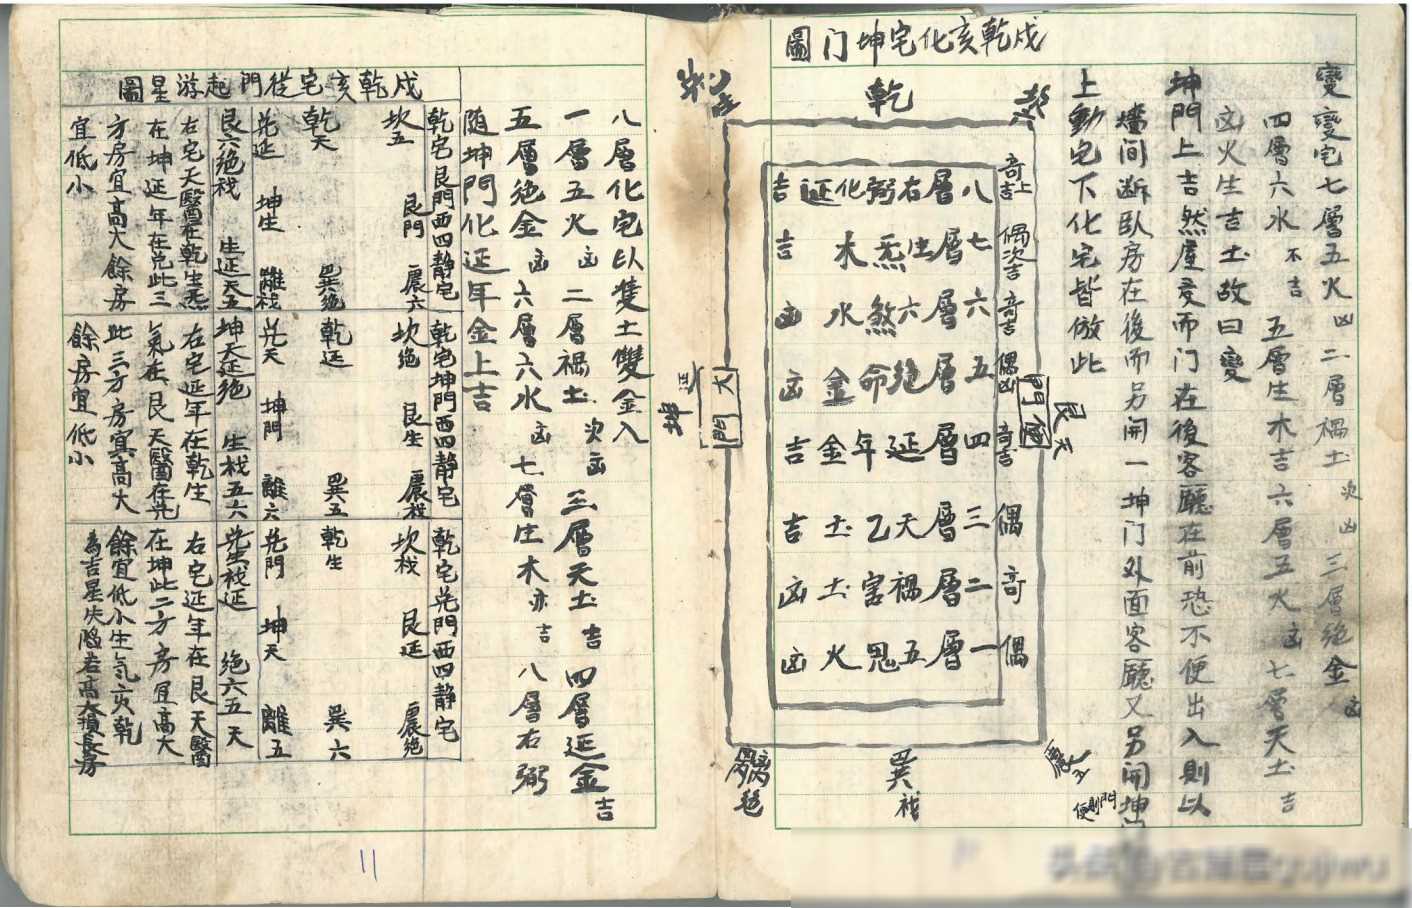 變變宅七層五火凶二層禍土次凶三層絶金凶
四層六水不吉五層生木吉六層五火凶七層天土吉
凶火生吉土故曰變
坤門上吉然屋变而门在後客廳在前恐不便出入則以
墻间断臥房在後而另開一坤门外面客廳又另開坤
上動宅下化宅皆倣此
圖门坤宅化亥乾戍
乾
吉延化弼右層八
吉木炁生層七
凶水煞六層六
凶金命絶層五
吉金年延層四
吉土乙天層三
凶土害禍層二
凶火鬼五層一
奇上吉
偶次吉
奇吉
偶凶
奇吉
偶
奇
偶
大門
坤延
便門
艮天
巽栈
離絶
震五
便則門
八層化宅以隻土雙金入
一層五火凶二層禍土次凶三層天土吉四層延金吉
五層絶金凶六層六水凶七層生木亦吉八層右弼
随坤門化延年金上吉
圖星游起門從宅亥乾戍
乾宅艮門西四静宅
坎五艮門震六
乾天巽絶
兑延坤生離栈
艮六絶栈生延天五
右宅天醫在乾生炁
在坤延年在兑此三
方房宜高大餘房
宜低小
乾宅坤門西四静宅
坎絶艮生震栈
乾延巽五
兑天坤門離六
坤天延絶生栈五六
右宅延年在乾生
氣在艮天醫在兑
此三方房宜高大
餘房宜低小
乾宅兑門西四静宅
坎栈艮延震絶
乾生巽六
兑門坤天離五
兑生栈延絶六五天
右宅延年在艮天醫
在坤此二方房宜高大
餘宜低小生氣亥乾
為吉星失陷若高大損長房
11